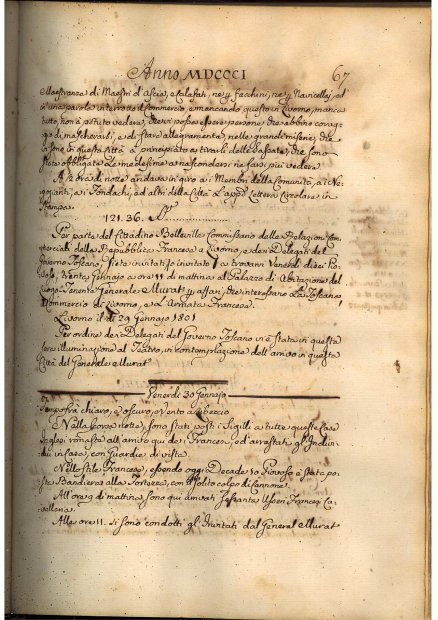 Anno MDCCCI 67
Maestranze di Maestri d'ascia, e Calafati, ne Facchini, ne Navicellaj, ed
in una parola interrotto il Commercio, e mancando questo in Livorno, manca
tutto, non è potuto vedere, che vi possa essere persone che abbino corag-
gio di mascherarsi, e di stare allegramente, nelle grandi miserie, che
sono in questa Città
state obbligate a nascondersi ne farsi più vedere.
A sera di notte andava in giro a i Membri della Comunità, a i Ne-
gozianti, a i Fondachi, ed altri della Città Lettera Circolare in
stampa.
121. 36.
Per parte del Cittadino Belleville Commissario delle Relazioni Com-
merciali della Repubblica Francese a Livorno, e dei Delegati del
Governo Toscano, siete invitati a trovarvi Venerdì dieci Pio-
voso, trenta Gennajo a ore 11 di mattina al Palazzo di Abitazione del
Luogo Tenente Generale Murat affari, che interessano La Toscana,
Commercio di Livorno, e L'Armata Francese.
Livorno il dì 29 Gennajo 1801
Per ordine dei Delegati del Governo Toscano vi è stata in questa
sera illuminazione al Teatro, in contemplazione dell'arrivo in questa
Città del Generale Murat
Venerdì 30 Gennajo
Temporà chiaro, e oscuro, vento a Libeccio
Nella scorsa notte, sono stati posti i Sigilli a tutte queste Case
Inglesi rimaste all'arrivo qui de i Francesi, ed arrestati gl'Individ-
ui in Casa, con Guardie di vista.
Nello stile Francese, essendo oggi Decade 10 Piovoso è stata po-
sta Bandiera alla Fortezza, con il solito colpo di Cannone.
All'ore 9 di mattina sono qui arrivati Sessanta Usseri Francesi Ca-
valleria.
Alle ore 11. si sono condotti gl'Invitati dal General Murat